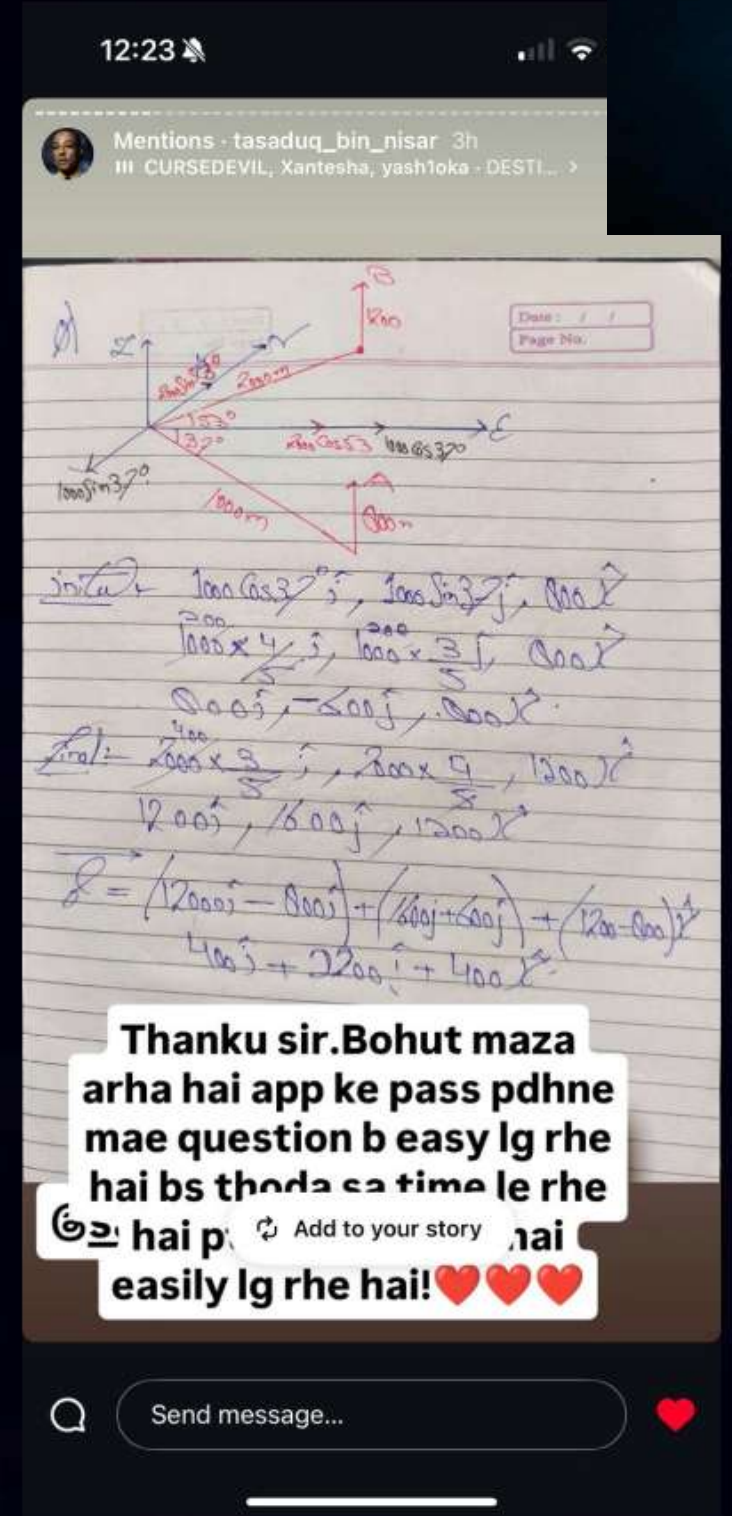 12:23
Mentions · tasaduq_bin_nisar 3h
CURSEDEVIL, Xantesha, yash1oka · DESTI... >
B
1200
Date : / /
Page No.
Z
N
2000m
53°
E
37°
2000 Cos53
1000 Cos37°
1000 Sin37°
A
1000m
800m
1000 Cos37° i, 1000 Sin37 j, 800 k̂
200 200
1000 × 4/5 i, 1000 × 3/5 j, 800 k̂
800 i, -600 j, 800 k̂
400
2000 × 3/5 i, 2000 × 4/5, 1200 k̂
1200 i, 1600 j, 1200 k̂
= (12000 i - 800 i) + (1600 j + 600 j) + (1200 - 800) k̂
400 i + 2200 j + 400 k̂
Thanku sir.Bohut maza
arha hai app ke pass pdhne
mae question b easy lg rhe
hai bs thoda sa time le rhe
hai
Add to your story
hai
easily lg rhe hai!❤️❤️❤️
Send message...